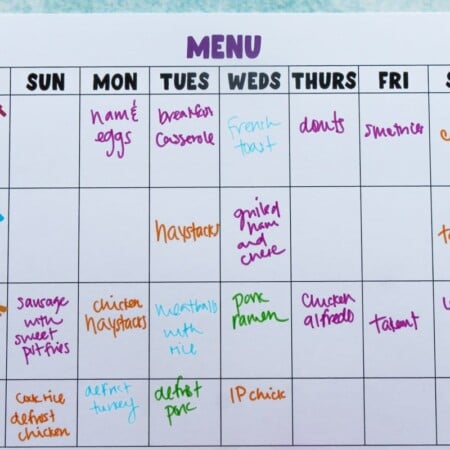 MENU
SUN MON TUES WEDS THURS FRI
ham &
eggs
breakfast
casserole
french
toast
donuts
haystacks
grilled
ham
and
cheese
sausage
with
sweet
pit fries
chicken
haystacks
meatballs
with
rice
pork
ramen
chicken
alfredo
takeout
cook rice
defrost
chicken
defrost
turkey
defrost
pork
IP chick